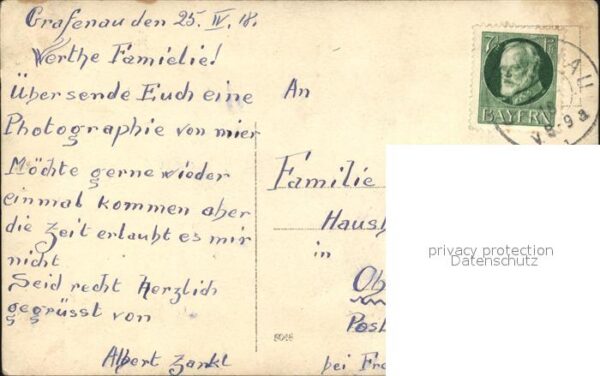 Grafenau den 25. IV. 18.
Werthe Famielie!
Übersende Euch eine
Photographie von mier
Möchte gerne wieder
einmal kommen aber
die Zeit erlaubt es mir
nicht
Seid recht Herzlich
gegrüsst von
Albert Zankl
An
Familie
Haush
in
Ob
Post
bei Fre
7½
BAYERN
NAU
V 8-9 a
privacy protection
Datenschutz